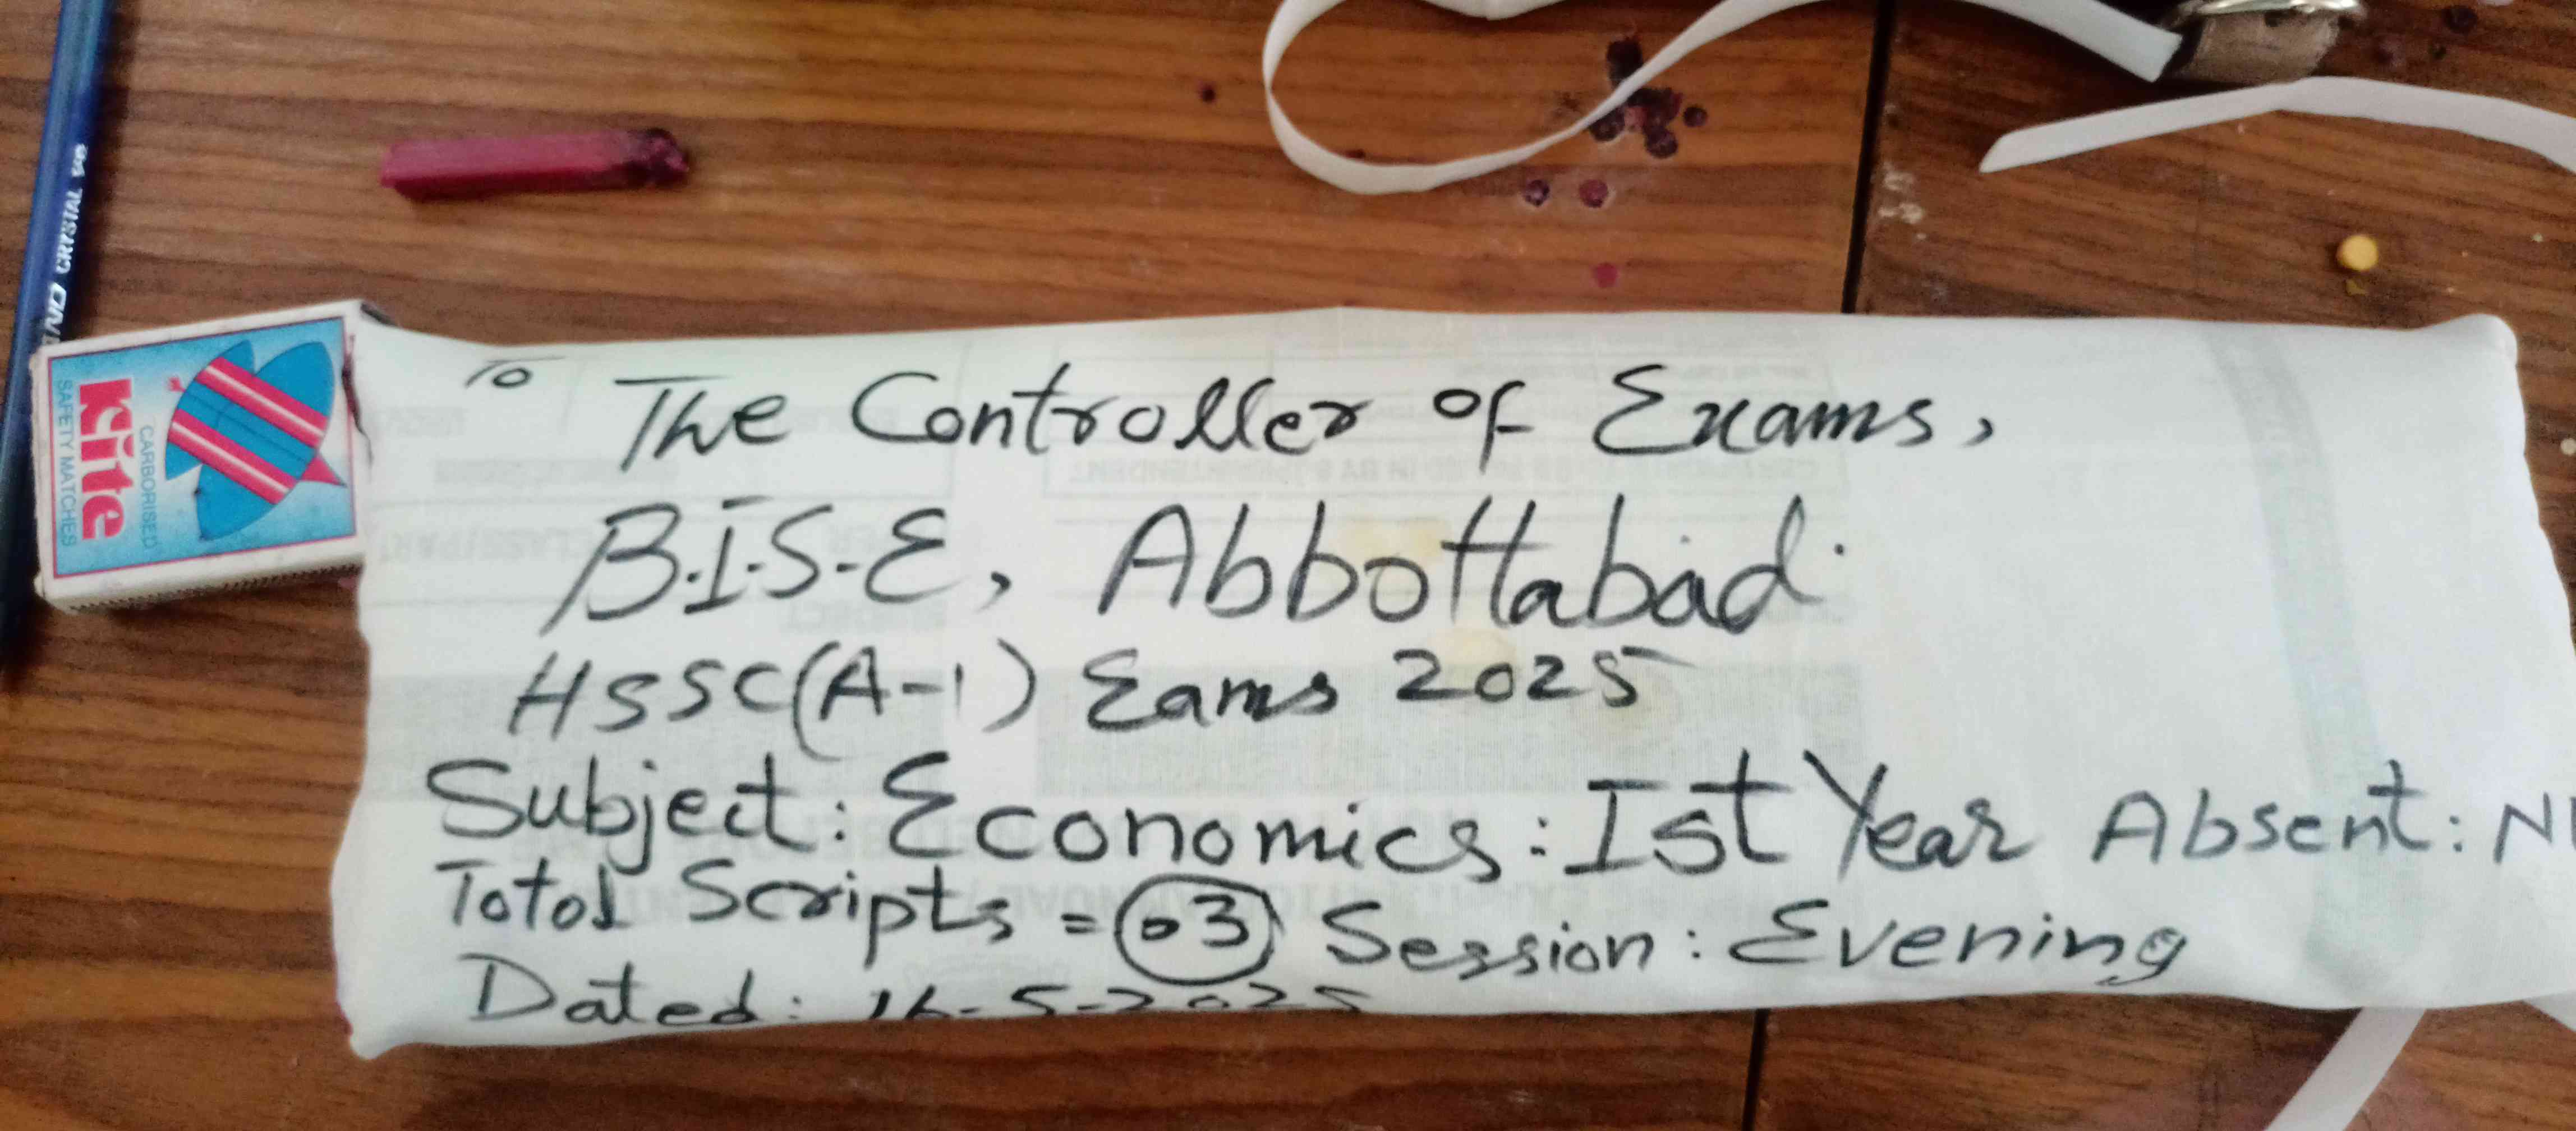 To
The Controller of Exams,
B.I.S.E, Abbottabad.
HSSC(A-1) Eams 2025
Subject: Economics: Ist Year Absent:
Total Scripts = 03 Session: Evening
Dated: 16-5-2025
Kite
CARBORISED
SAFETY MATCHES
CRYSTAL